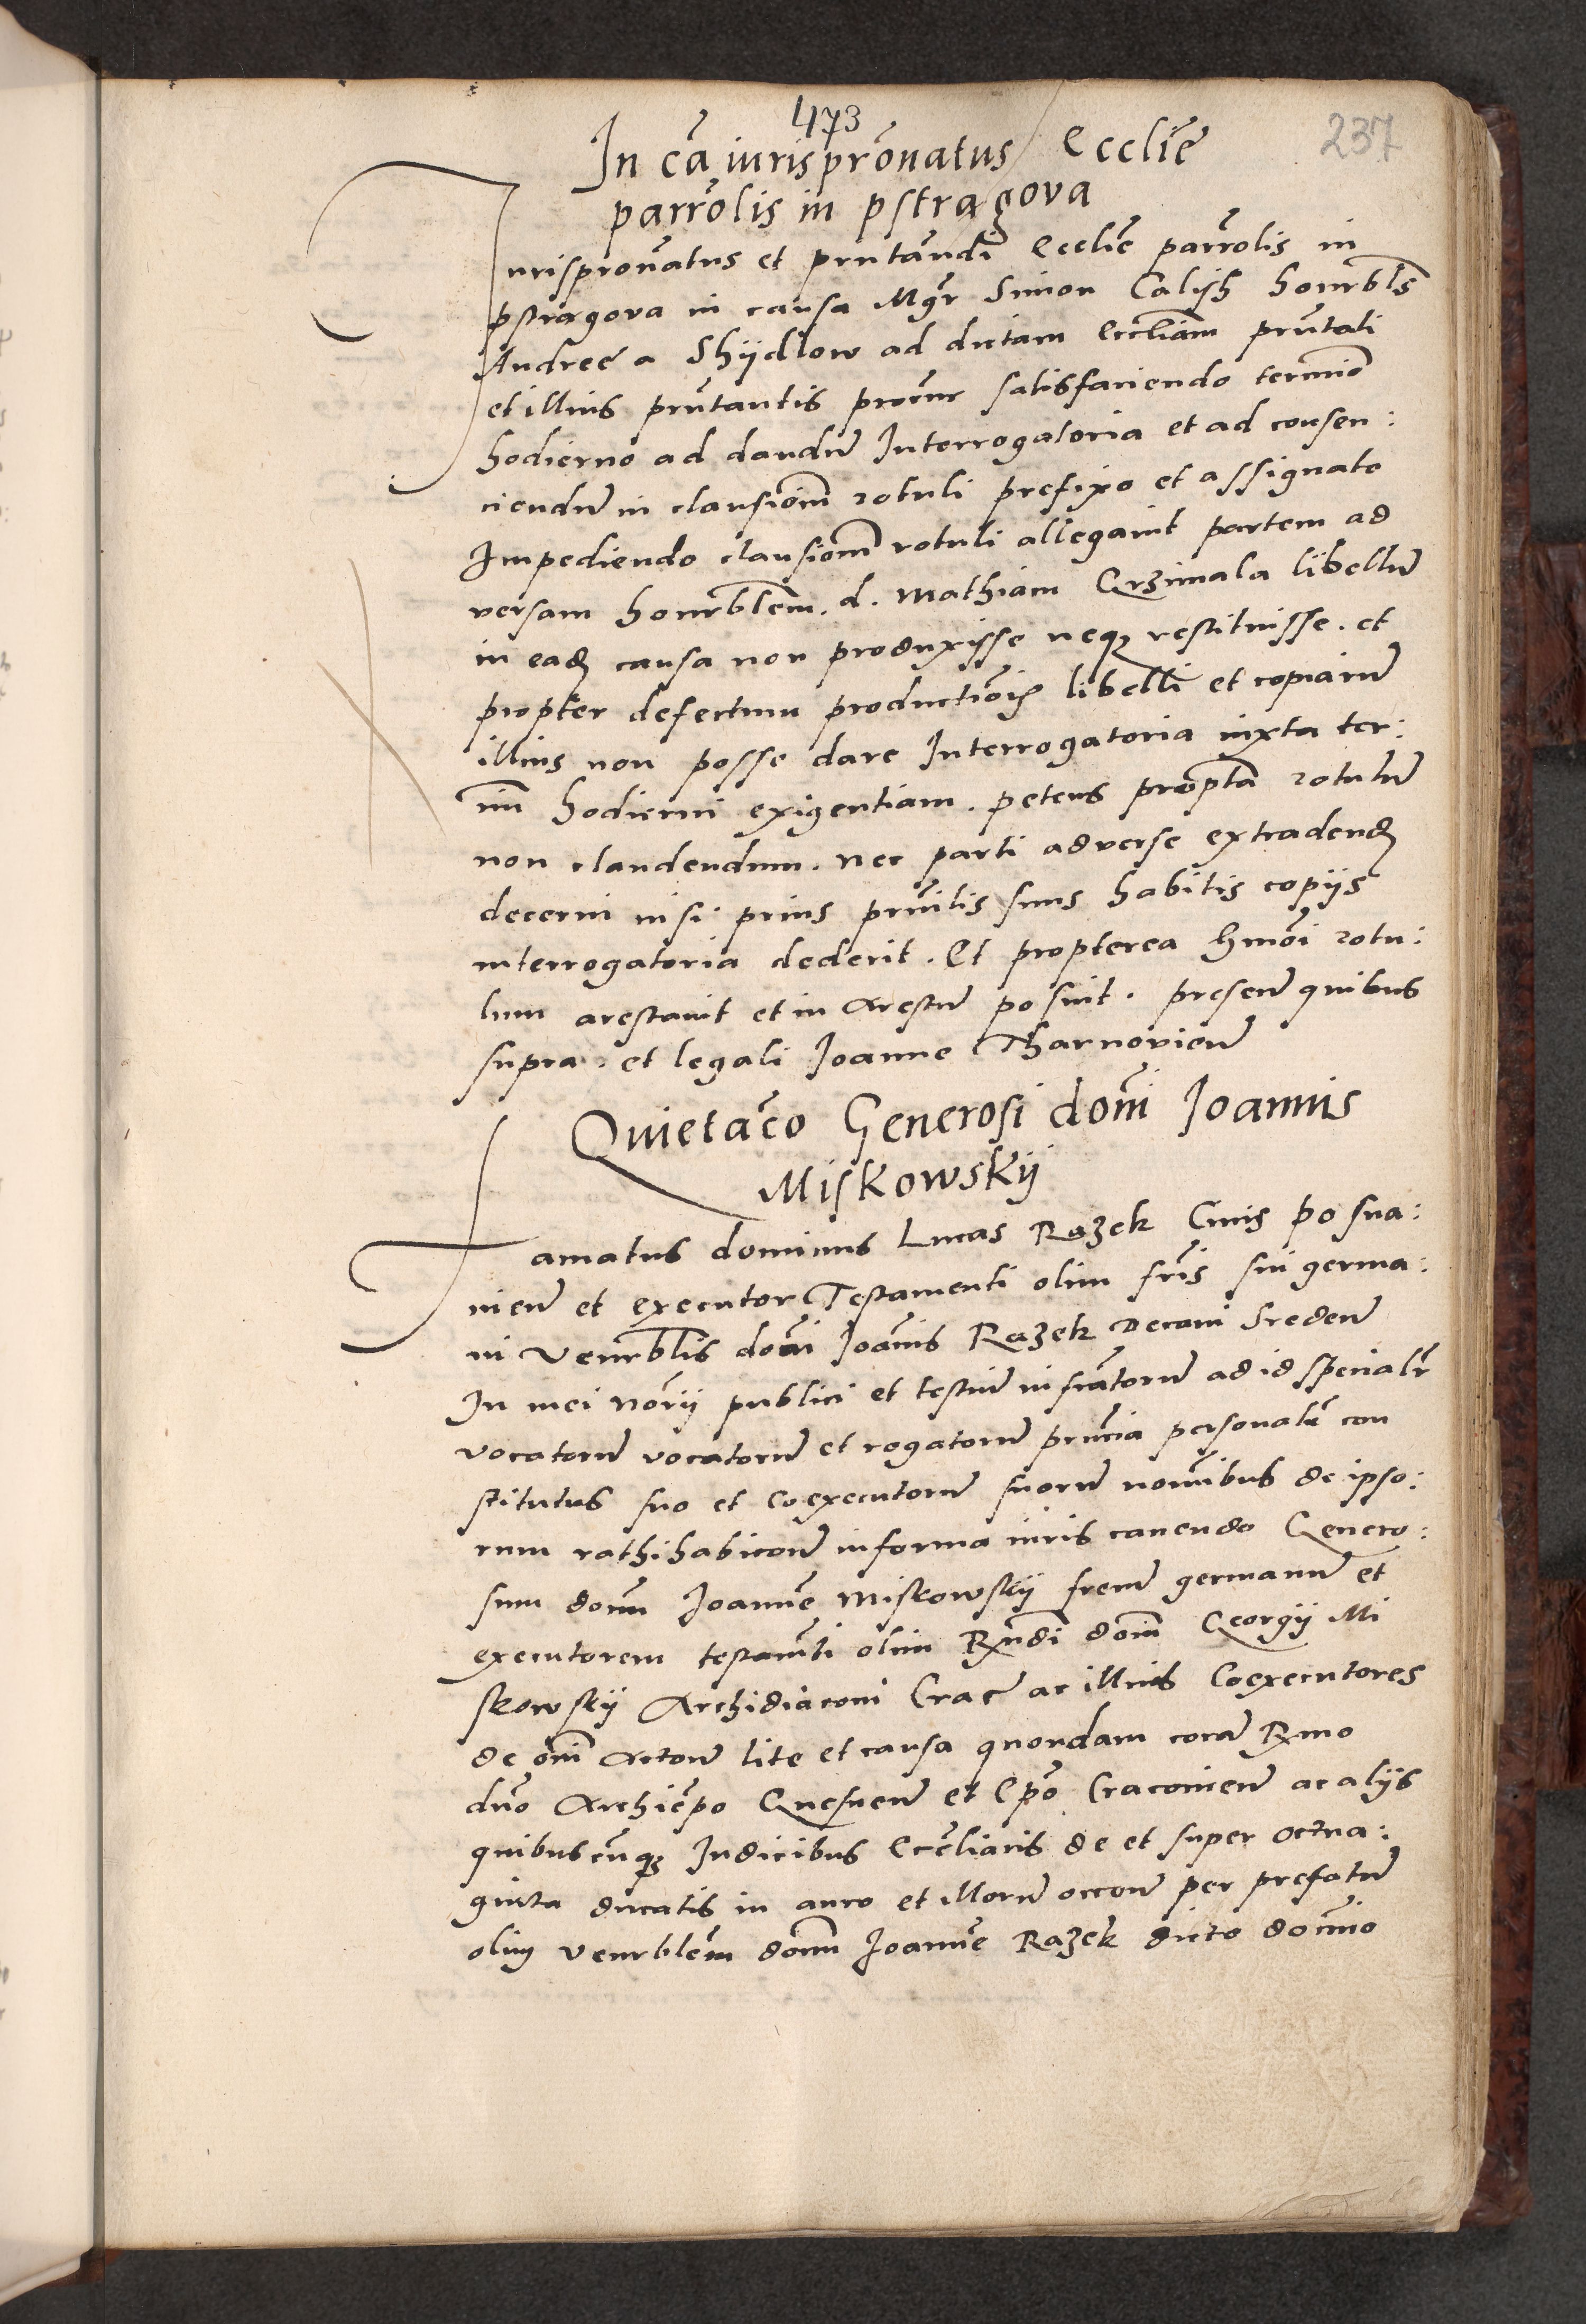 473
237
In cā iurisprōnatus Ecclīe
parrōlis in pstragova
Iurisprōnatus et prntāndi Ecclīe parrōlis in
pstragova in causa Mgr Simon Calish honrblis
Andreę a Shÿdlow ad dictam Eccliam prntati
et illius prntantis procur satisfaciendo termīo
hodierno ad dandū Interrogatoria et ad consen:
ciendū in clausiōm rotuli prefixo et assignato
Impediendo clausiōm rotuli allegauit partem ad
versam honrblem. d. Mathiam Grzimala libellū
in eadē causa non produxisse neqȝ restituisse. et
propter defectum productiōis libelli et copiarū
illius non posse dare Interrogatoria iuxta ter:
mi hodierni exigentiam. petens proptā rotulū
non claudendum. nec parti adverse extradendū
decerni nisi prius habitis copÿs
interrogatoria dederit. Et propterea hmōi rotu:
lum arestauit et in Arestū posuit. presenū quibus
supra. et legali Joanne Tharnovienū
Quietacō Generosi domī Joannis
Miskowskÿ
Famatus dominus Lucas Razek Ciuis posna:
nienū et executor Testamenti olim frīs sui germa:
ni Venrblis domī Joānis Razek Decani Sredenū
In mei nōrÿ publici et testiū infrātorū ad id specialr
vocatorū vocatorū et rogatorū prncia personalr con
stitutus suo et coexecutorū suorū nomībus de ipso:
rum rathihabicone in forma iuris cauendo Genero:
sum domm Joannē Miskowskÿ fremū germanū et
executorem testamti olim Rxndi domī Georgÿ Mi
skowskÿ Archidiaconi Crac ac illius Coexecutores
de omī Actonē lite et causa quondam corā Rxmo
dno Archiēpo Gnesnenū et Epō Cracouienū ac alÿs
quibuscūqȝ Iudicibus Ecclīaris de et super octua:
ginta ducatis in auro et illorū occonē per prefatū
olim venrblem domm Joannē Razek dicto domīo